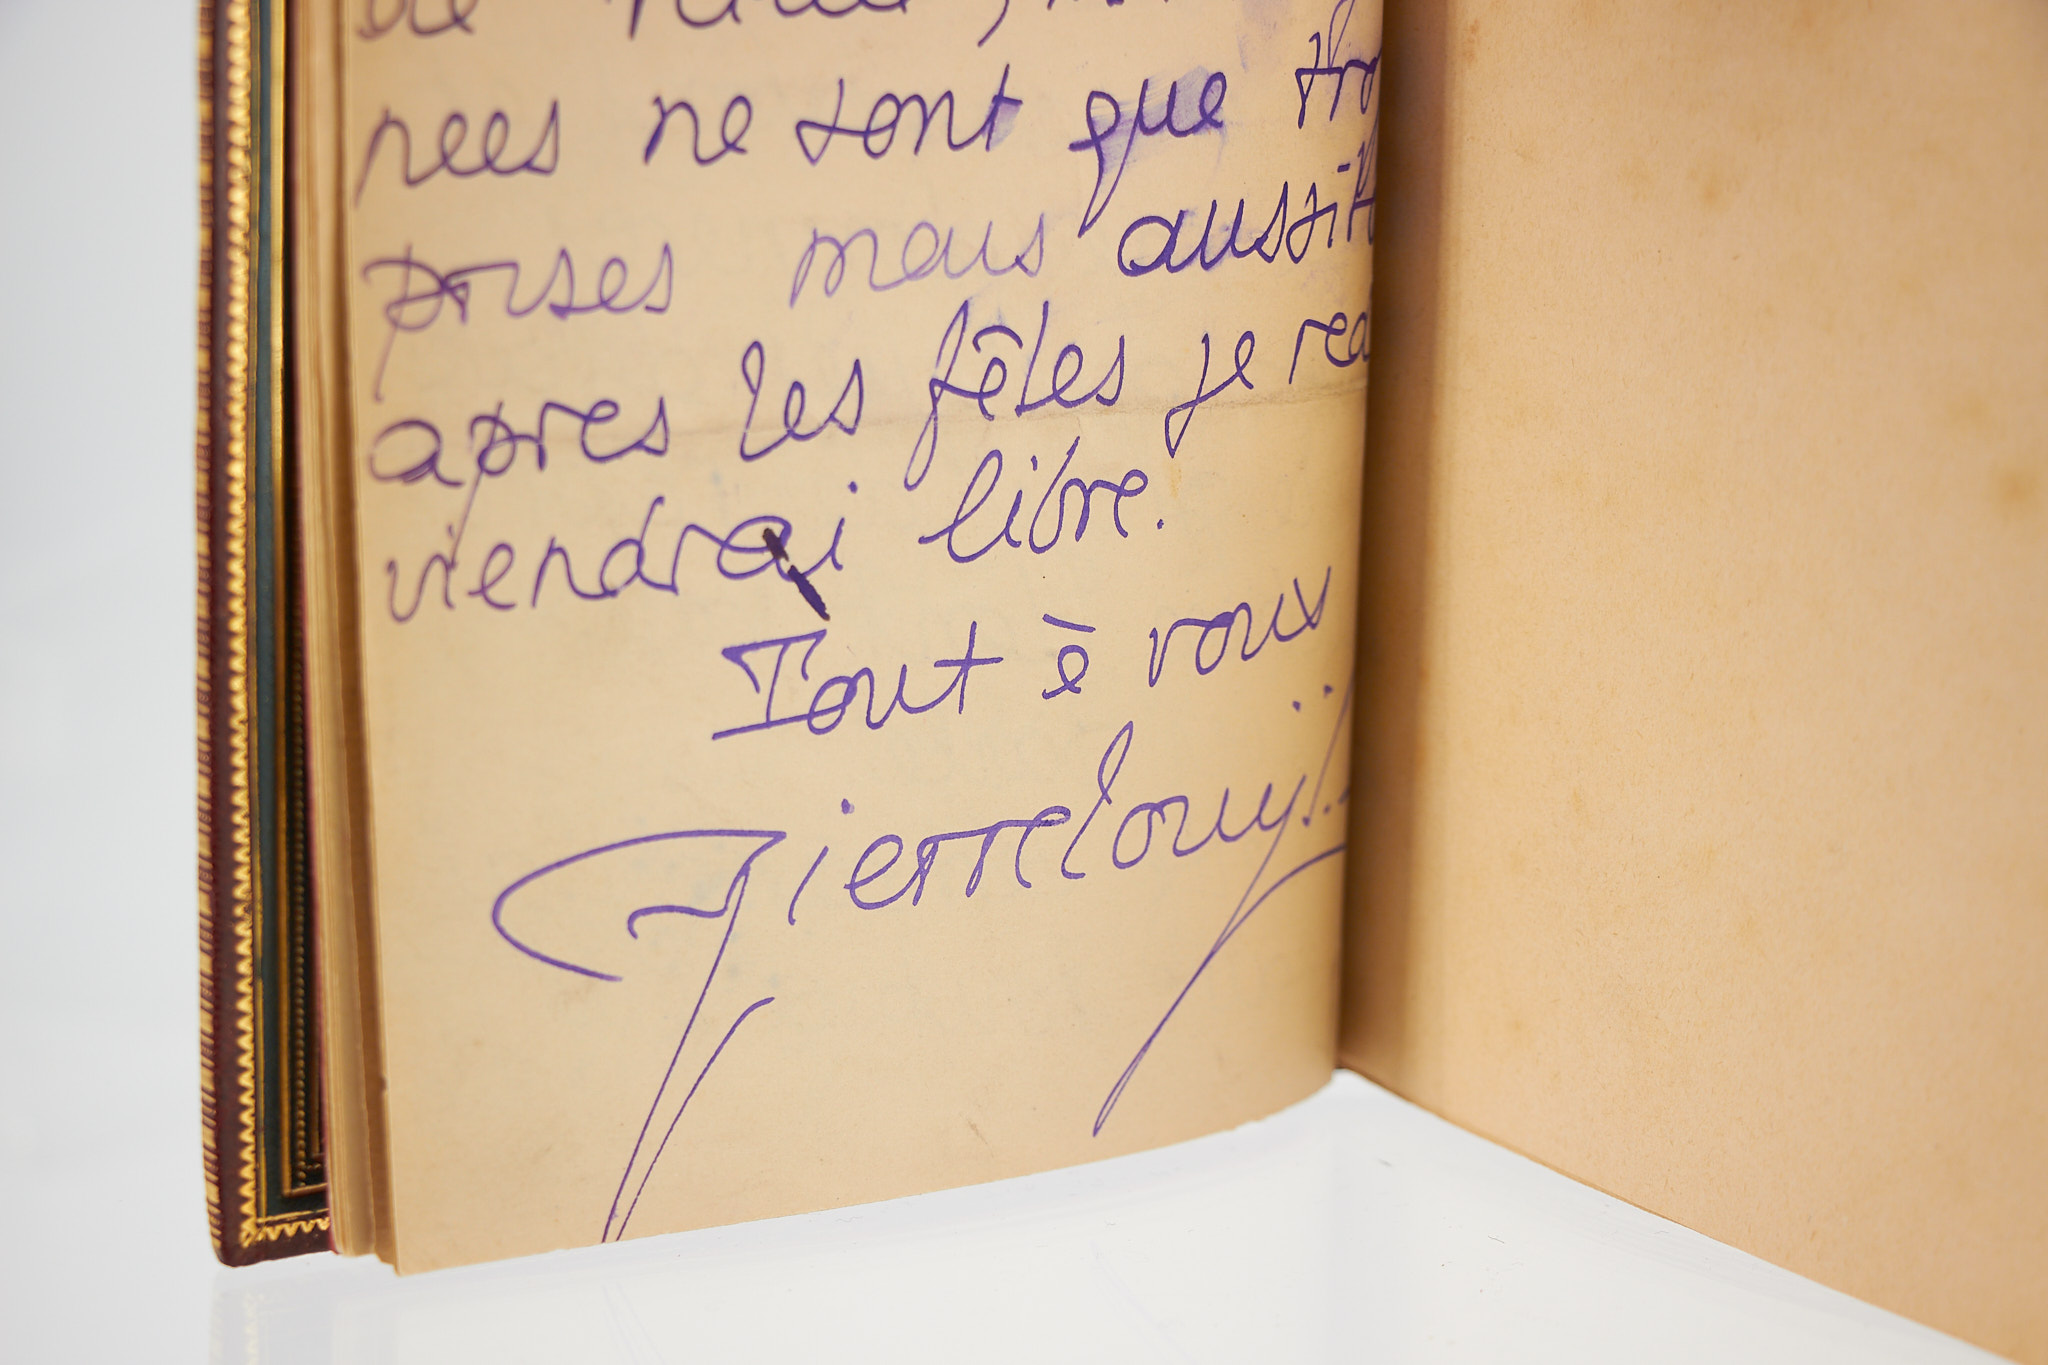 nées ne sont que trop
prises mais aussitôt
après les fêtes je rede
viendrai libre.
Tout à vous
Pierre Louÿs.